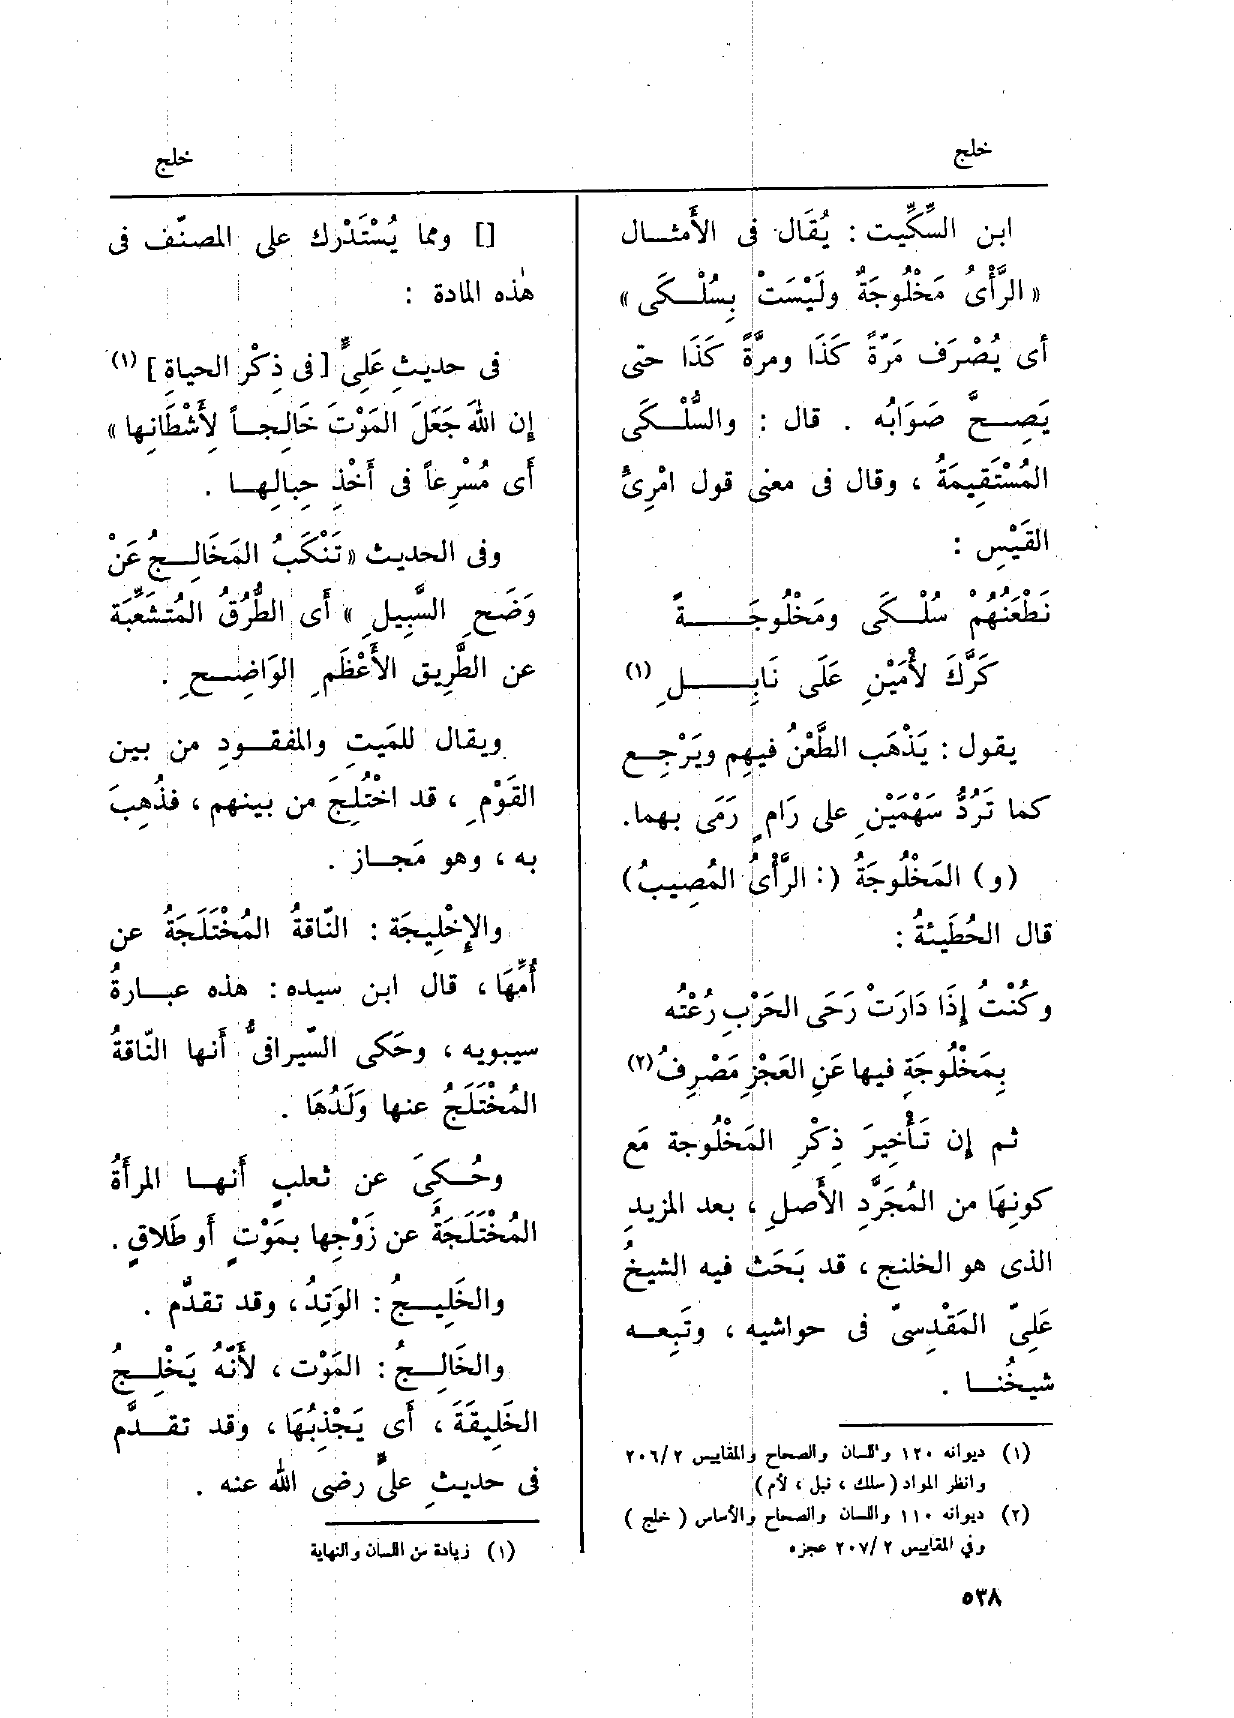 خلج
خلج
ابن السِّكِّيت : يُقَال فى الأَمثــال
« الرَّأْىُ مَخْلُوجَةٌ ولَيْسَتْ بِسُلْــكَى »
أى يُصْرَف مَرّةً كَذَا ومرَّةً كَذَا حتى
يَصِــحَّ صَوَابُه . قال : والسُّلْــكَى
المُسْتَقِيمَةُ ، وقال فى معنى قول امْرِئ
القَيْسِ :
نَطْعَنُهُمْ سُلْــكَى ومَخْلُوجَــــةً
كَرَّكَ لأْمَيْنِ عَلَى نَابِــــلِ (١)
يقول : يَذْهَب الطَّعْنُ فيهِم ويَرْجِــع
كما تَرُدُّ سَهْمَيْنِ على رَامٍ رَمَى بهما.
(و) المَخْلُوجَةُ (: الرَّأْىُ المُصِيبُ)
قال الحُطَيئةُ :
وكُنْتُ إِذَا دَارَتْ رَحَى الحَرْبِ رُعْتُه
بِمَخْلُوجَةٍ فيها عَنِ العَجْزِ مَصْرِفُ (٢)
ثم إن تَأْخِيرَ ذِكْرِ المَخْلُوجة مَع
كونِهَا من المُجَرَّدِ الأَصلِ ، بعد المزيدِ
الذى هو الخلنج ، قد بَحَث فيه الشيخُ
عَلِىّ المَقْدِسىّ فى حواشيه ، وتَبِعــه
شيخُنــا .
(١) ديوانه ١٢٠ واللسان والصحاح والمقاييس ٢/ ٢٠٦
وانظر المواد (سلك ، نبل ، لأم)
(٢) ديوانه ١١٠ واللسان والصحاح والأساس ( خلج )
وفي المقاييس ٢/ ٢٠٧ عجزه
[] ومما يُسْتَدْرك على المصنّف فى
هٰذه المادة :
فى حديثِ عَلِىٍّ [ فى ذِكْر الحياةِ ] (١)
إن اللهَ جَعَلَ المَوْتَ خَالِجــاً لِأَشْطَانِها »
أَى مُسْرِعاً فى أَخْذِ حِبالِهــا .
وفى الحديث « تَنْكَبُ المَخَالِــجُ عَنْ
وَضَحِ السَّبِيلِ » أَى الطُّرُقُ المُتشَعِّبَة
عن الطَّرِيق الأَعْظَمِ الوَاضِــحِ .
ويقال للمَيتِ والمفقــودِ من بين
القَوْمِ ، قد اخْتُلِجَ من بينهم ، فذُهِبَ
به ، وهو مَجــاز .
والإِخْلِيجَة : النّاقةُ المُخْتَلَجَةُ عن
أُمِّهَا ، قال ابن سيده : هذه عبــارةُ
سيبويه ، وحَكى السِّيرافىُّ أَنها النّاقةُ
المُخْتَلَجُ عنها وَلَدُهَا .
وحُــكِىَ عن ثعلبٍ أَنهــا المرأَةُ
المُخْتَلَجَةُ عن زَوْجِها بمَوْتٍ أَو طَلاقٍ .
والخَلِيــجُ : الوَتِدُ ، وقد تقدّم .
والخَالِــجُ : المَوْت ، لأَنّهُ يَخْلِــجُ
الخَلِيقَةَ ، أَى يَجْذِبُهَا ، وقد تقــدَّم
فى حديثِ علىٍّ رضى الله عنه .
(١) زيادة من اللسان والنهاية
٥٣٨